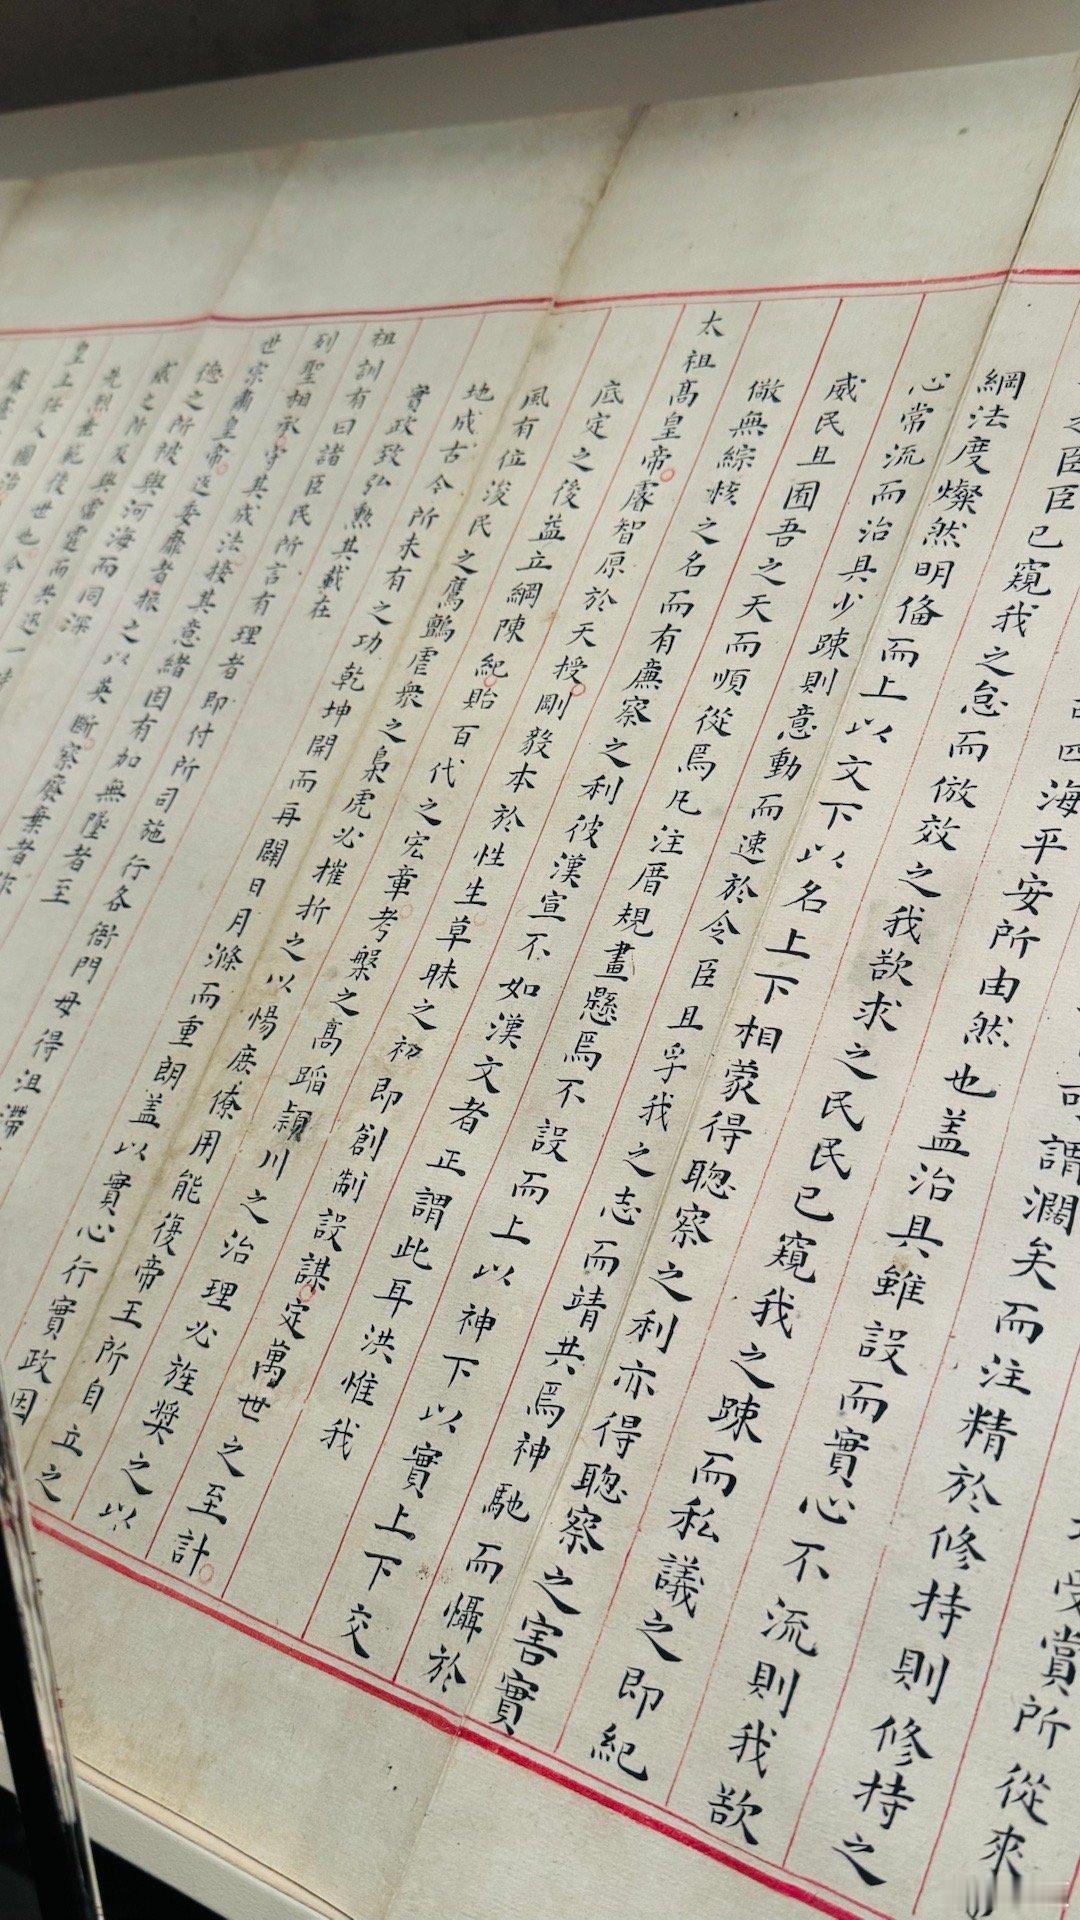 受賞所從來
謂濶矣而注精於修持則修持之
四海平安所由然也盖治具雖設而實心不流則我欲
之臣臣已窺我之怠而倣效之我欲求之民民已窺我之踈而私議之即紀
綱法度燦然明俻而上以文下以名上下相蒙得聦察之利亦得聦察之害實
心常流而治具少踈則意動而速於令臣且孚我之志而靖共焉神馳而懾於
威民且囿吾之天而順從焉凡注厝規畫懸焉不設而上以神下以實上下交
儆無綜核之名而有廉察之利彼漢宣不如漢文者正謂此耳洪惟我
太祖髙皇帝睿智原於天授剛毅本於性生草昧之初即創制設謀定萬世之至計
底定之後益立綱陳紀貽百代之宏章考槃之髙蹈潁川之治理必旌奬之以
風有位浚民之鷹鸇虐衆之梟虎必摧折之以惕庶僚用能復帝王所自立之
地成古今所未有之功乾坤開而再闢日月滌而重朗盖以實心行實政因
實政致弘勲其載在
祖訓有曰諸臣民所言有理者即付所司施行各衙門毋得沮滯
列聖相承守其成法接其意緒固有加無墜者至
世宗肅皇帝返委靡者振之以英斷察廢棄者作
德之所被與河海而同深
威之所及與雷霆而共迅一時
先烈垂範後世也今我
皇上任人圖治